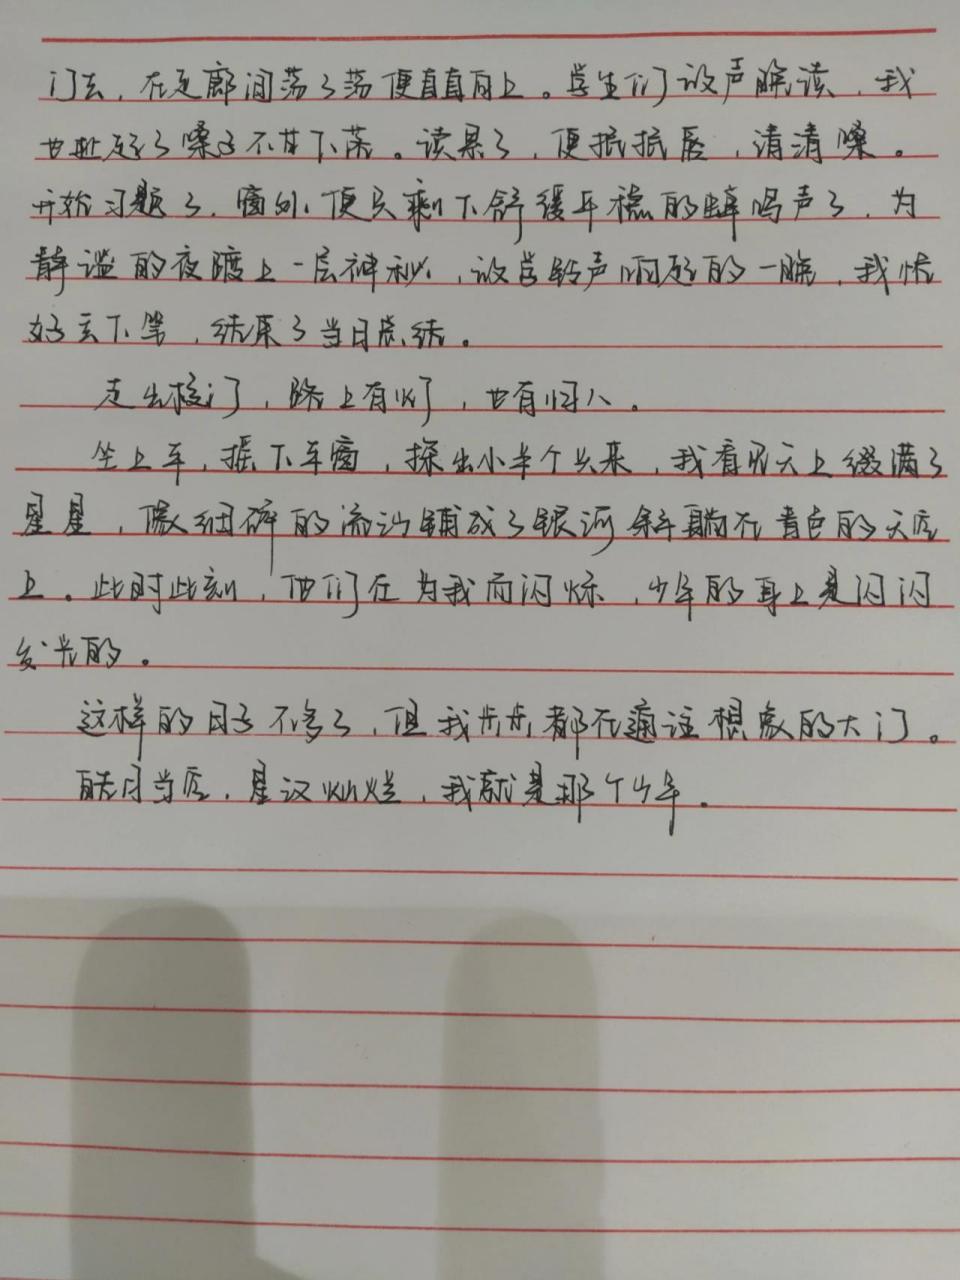 门去，在走廊间荡了荡便直直向上。学生们放声晚读，我
也扯起了嗓子不甘下落。读累了，便抿抿唇，清清嗓。
开始习题了，窗外便只剩下舒缓平稳的蝉鸣声了，为
静谧的夜镀上一层神秘，放学铃声响起的一晚，我恰
好玄下笔，结束了当日总结。
走出校门，路上有灯，也有归人。
坐上车，摇下车窗，探出小半个头来，我看见天上缀满了
星星，像细碎的流沙铺成了银河斜躺在青色的天空
上。此时此刻，他们在为我而闪烁，少年的身上是闪闪
发光的。
这样的日子不多了，但我步步都在通往想象的大门。
皓月当空，星汉灿烂，我就是那个少年。